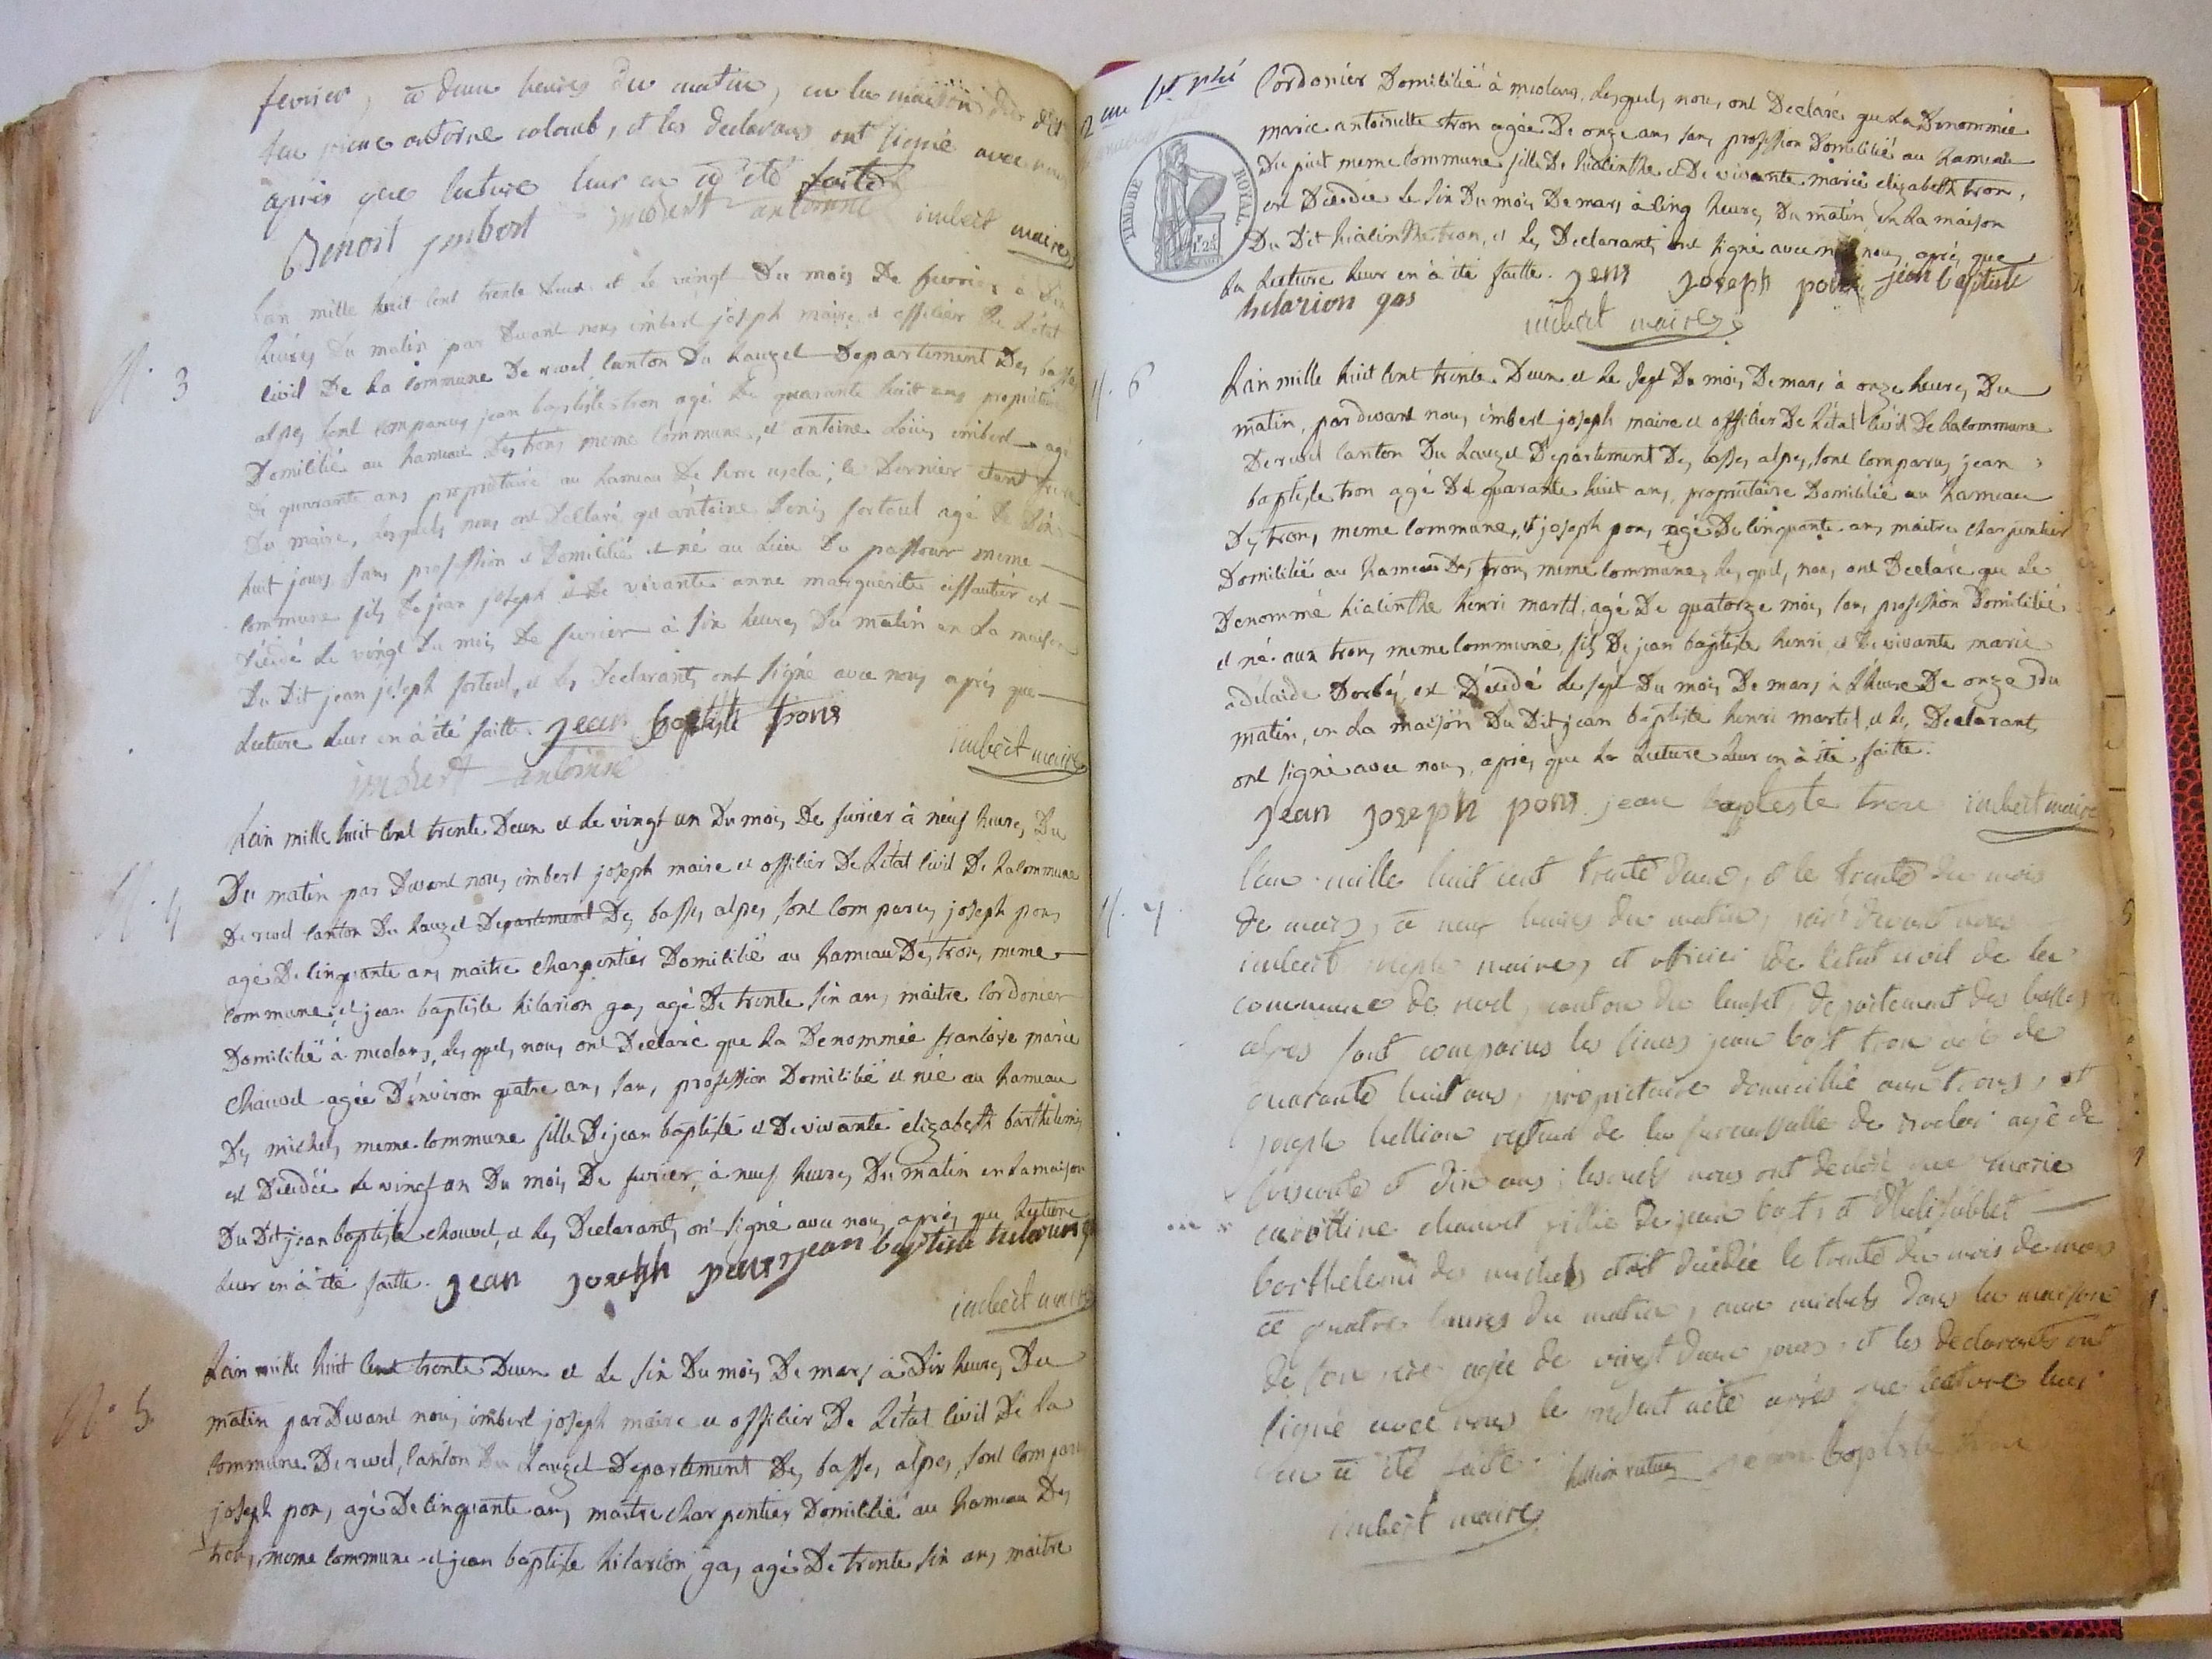 fevrier, a deux heures du matin, en la maison du dit
feu pierre antoine colomb, et les declarans ont signé avec nous
après que lecture leur en a été faite
Benoit jmbert imbert antoinne imbert maire
N.° 3
Lan mille huit cent trente deux et le vingt Du mois De fevrier à Dix
heures Du matin par Devant nous imbert joseph maire et offisier De Létat
civil De La commune De revel, canton Du Lauzet Departement Des basses
alpes sont comparus jean baptiste tron agé De quarante huit ans propriétaire
Domicilié au hameau Des trons meme commune, et antoine Louis imbert agé
de quarante ans propriétaire au hameau De serre usela; le Dernier etant frere
Du maire, Lesquels nous ont Déclaré qu'antoine Denis fortoul agé De Dix
huit jours sans profession et Domicilié et né au Lieu Du passour meme
commune fils De jean joseph et De vivante anne marguerite eissautier est
Décédé Le vingt Du mois De fevrier à six heures Du matin en La maison
Du Dit jean joseph fortoul, et Les Declarants ont signé avec nous après que
Lecture Leur en à été faitte. jean baptiste trons
imbert antoinne imbert maire
N.° 4
Lan mille huit cent trente Deux et Le vingt un Du mois De fevrier à neuf heures Du
Du matin par Devant nous imbert joseph maire et offisier De Létat civil De La commune
De revel canton Du Lauzet Departement Des basses alpes sont comparus joseph pons
agé De cinquante ans maitre charpentier Domicilié au hameau Des trons meme
commune, et jean baptiste hilarion gas agé De trente six ans maitre cordonier
Domicilié à meolans, Les quels nous ont Declaré que La Denommée francoise marie
chauvet agée D'environ quatre ans, sans profession Domicilié et née au hameau
Des michels meme commune fille De jean baptiste et De vivante elizabeth barthelemi
est Décédée Le vingt un Du mois De fevrier, à neuf heures Du matin en La maison
Du Dit jean baptiste chauvet, et Les Declarants ont signé avec nous après que Lecture
Leur en à été faitte. jean joseph pons jean baptiste hilarion gas
imbert maire
N.° 5
Lan mille huit cent trente Deux et Le six Du mois De mars à Dix heures Du
matin par Devant nous imbert joseph maire et offisier De Létat civil De La
commune De revel, canton Du Lauzet Departement Des basses alpes, sont comparus
joseph pons agé De cinquante ans maitre charpentier Domicilié au hameau Des
trons, meme commune et jean baptiste hilarion gas agé De trente six ans maitre
TIMBRE ROYAL
cordonier Domicilié à meolans. Lesquels nous ont Declaré que La Denommée
marie antoinette tron agée De onze ans sans profession Domicilié au hameau
Du puit meme commune fille De hiacinthe et De vivante marie elizabeth tron,
est Décédée Le six Du mois De mars à cinq heures Du matin en La maison
Du Dit hiacinthe tron, et Les Declarants ont signé avec nous après que
La Lecture Leur en à été faitte. jean joseph pons jean baptiste
hilarion gas
imbert maire
N. 6
Lan mille huit cent trente Deux et Le sept Du mois De mars à onze heures Du
matin, par devant nous imbert joseph maire et offisier De Létat civil De La commune
De revel canton Du Lauzet Departement Des basses alpes, sont comparus jean
baptiste tron agé De quarante huit ans, propriétaire Domicilié au hameau
Des trons, meme commune, et joseph pons agé De cinquante ans maitre charpentier
Domicilié au hameau Des trons, meme commune, Les quels nous ont Declaré que Le
Denommé hiacinthe henri martel, agé De quatorze mois, sans profession Domicilié
et né aux trons meme commune, fils De jean baptiste henri, et De vivante marie
adélaide Dorbés, est Décédé Le sept Du mois De mars à L'heure De onze Du
matin, en La maison Du Dit jean baptiste henri martel, et Les Declarants
ont signé avec nous, après que La Lecture Leur en à été faitte.
jean joseph pons. jean baptiste tron imbert maire
N. 7
L'an mille huit cent trente deux, et le trente du mois
de mars, à neuf heures du matin, par devant nous
imbert joseph maire, et officier de letat civil de la
commune de revel, canton du lauzet, departement des basses
alpes sont comparus les sieurs jean bapt tron agé de
quarante huit ans, propriétaire domicilié aux trons, et
joseph hellion recteur de la succursalle de agé de
soixante et dix ans; lesquels nous ont declaré que marie
chauvet fille de jean bapt, et d'helisabet
barthelemi des michels etoit décédée le trente du mois de mars
à quatre heures du matin, aux michels dans la maison
de son père agée de vingt deux jours, et les declarants ont
signé avec nous le présent acte après que lecture leur
en a été faite. hellion recteur jean baptiste tron
imbert maire